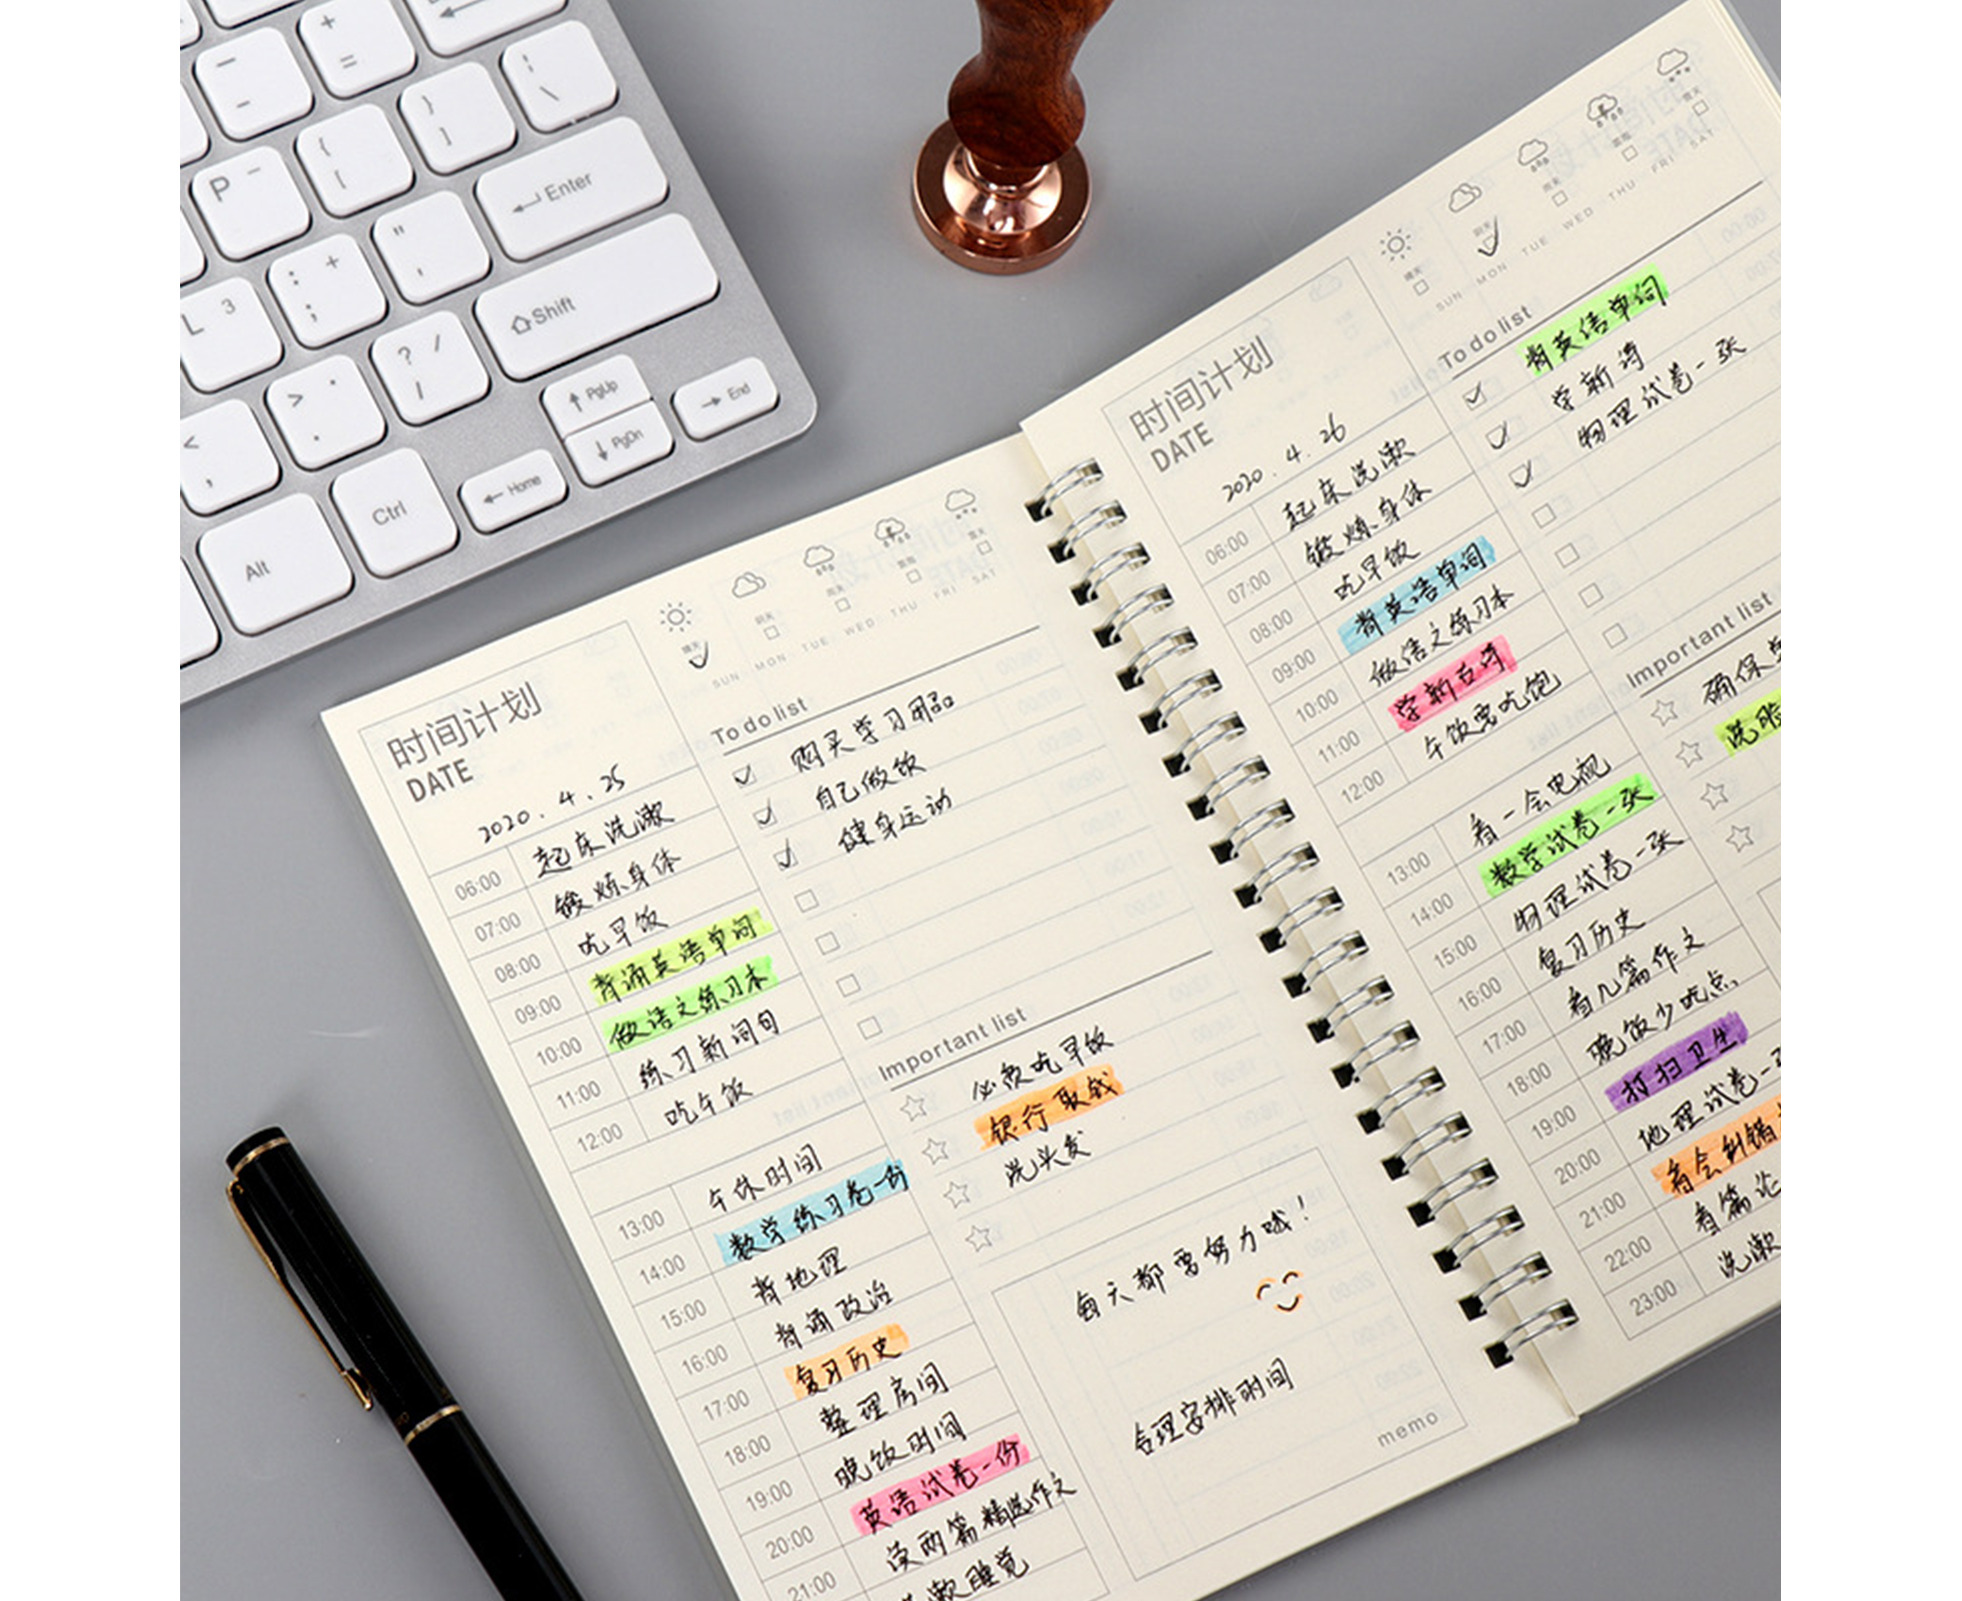 +
=
-
{
[
}
]
|
\
P
Enter
L 3
: +
;
"
'
Shift
> .
? /
PgUp
PgDn
End
<
,
Alt
Ctrl
Home
时间计划
DATE
2020.4.25
晴天
阴天
雨天
雷雨
雪天
SUN MON TUE WED THU FRI SAT
06:00 起床洗漱
07:00 锻炼身体
08:00 吃早饭
09:00 背诵英语单词
10:00 做语文练习本
11:00 练习新词句
12:00 吃午饭
午休时间
13:00 数学练习卷一份
14:00 背地理
15:00 背诵政治
16:00 复习历史
17:00 整理房间
18:00 晚饭时间
19:00 英语试卷一份
20:00 读两篇精选作文
21:00 漱睡觉
To do list
购买学习用品
自己做饭
健身运动
Important list
必须吃早饭
银行取钱
洗头发
每天都要努力哦!
合理安排时间
memo
时间计划
DATE
2020.4.26
晴天
阴天
雨天
雷雨
雪天
SUN MON TUE WED THU FRI SAT
06:00 起床洗漱
07:00 锻炼身体
08:00 吃早饭
09:00 背英语单词
10:00 做语文练习本
11:00 学新古诗
12:00 午饭要吃饱
看一会电视
13:00 数学试卷一张
14:00 物理试卷一张
15:00 复习历史
16:00 看几篇作文
17:00 晚饭少吃点
18:00 打扫卫生
19:00 地理试卷一
20:00 看会纠错
21:00 看篇论
22:00 洗漱
23:00
To do list
背英语单词
学新诗
物理试卷一张
Important list
确保
洗